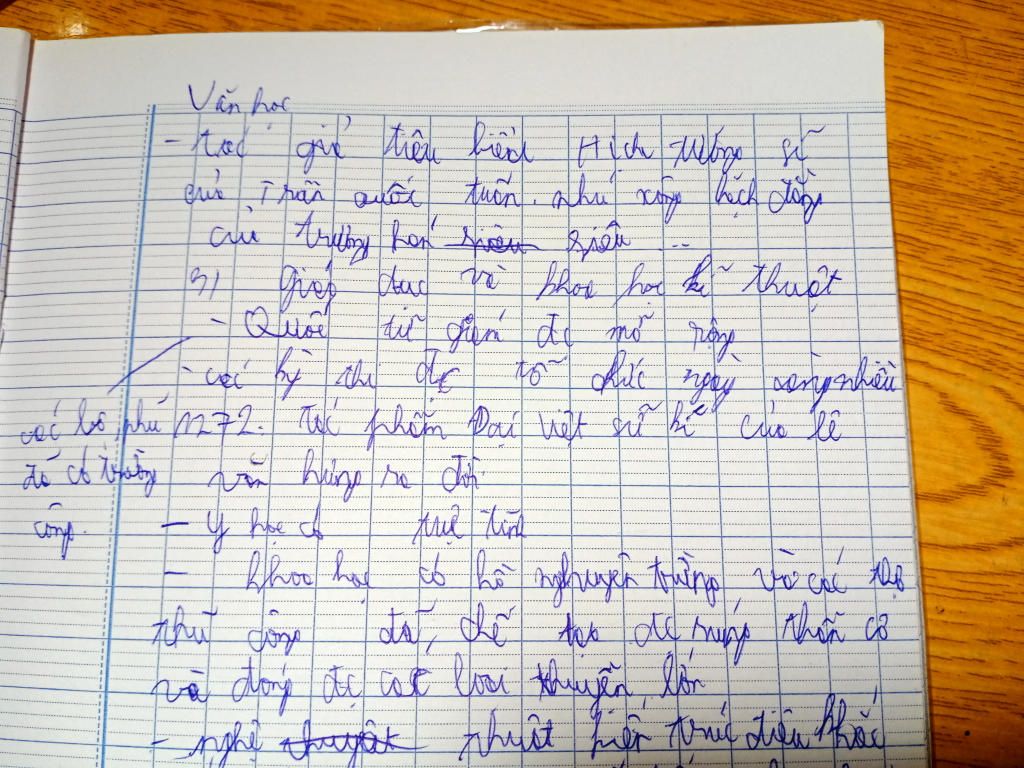 Văn học
- tác giả tiêu biểu Hịch tướng sĩ
của Trần quốc tuấn. như sông bạch đằng
của trương hán siêu siêu ...
3) giáo dục và khoa học kĩ thuật
- Quốc tử giám đc mở rộng
- các kỳ thi đc tổ chức ngày càng nhiều
các lộ, phủ 1272. tác phẩm Đại việt sử kí của lê
đó có trường văn hưng ra đời.
công.
- Y học có tuệ tĩnh
- khoa học có hồ nghuyên trừng, và các thợ
thủ công đã, chế tạo đc súng thần cơ
và đóng đc các loại thuyền lớn
- nghệ thuyật thuật kiến trúc điêu khắc